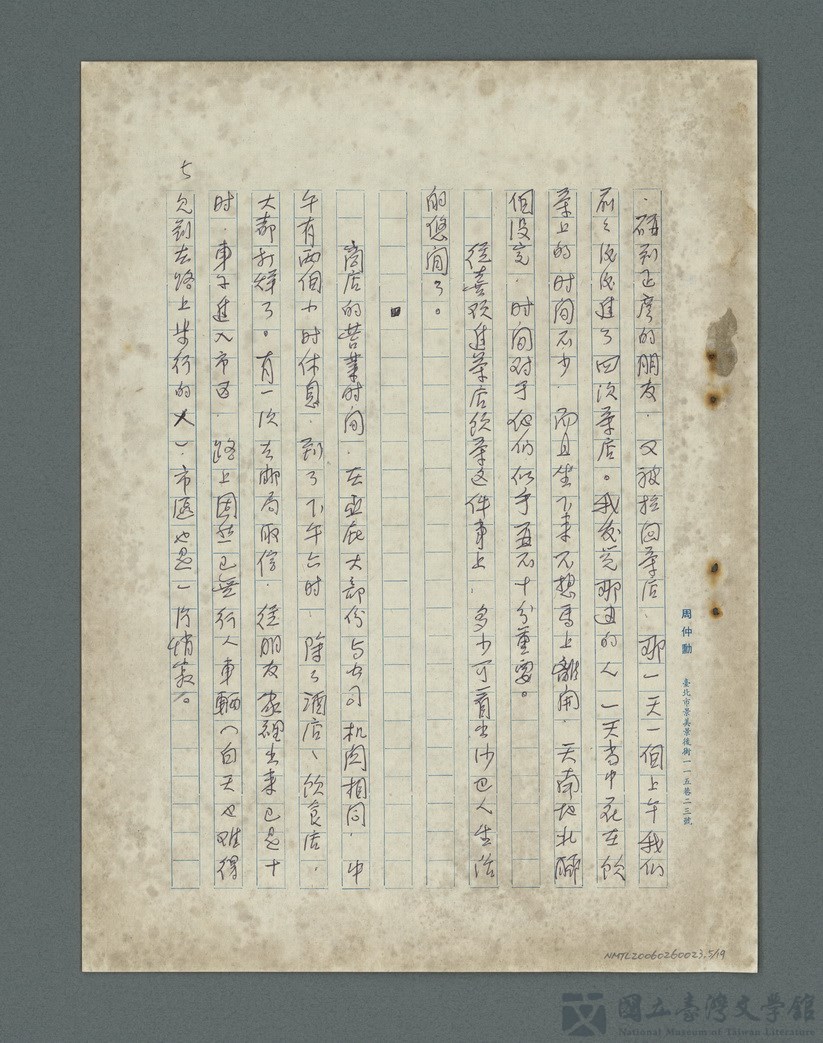 周仲勳
臺北市景美景後街一一五巷二三號
，碰到正彥的朋友，又被拉回茶店，那一天一個上午我们
前々後後進了四次茶店。我发觉那边的人一天当中花在饮
茶上的时间不少，而且坐下来不想馬上離開，天南地北聊
個没完，时间对于他们似乎並不十分重要。
從喜欢進茶店饮茶这件事上，多少可看出沙巴人生活
的悠闲了。
四
商店的营業时间，在亚庇大部份与公司机関相同，中
午有两個小时休息，到了下午六时，除了酒店、饮食店，
大都打烊了。有一次去邮局取信，從朋友家裡出来已是十
时，車子進入市区，路上固然已無行人車輛（白天也难得
見到在路上步行的人），市區也是一片悄寂。
七
NMTL20060260023.5/19
國立臺灣文學館
National Museum of Taiwan Literature